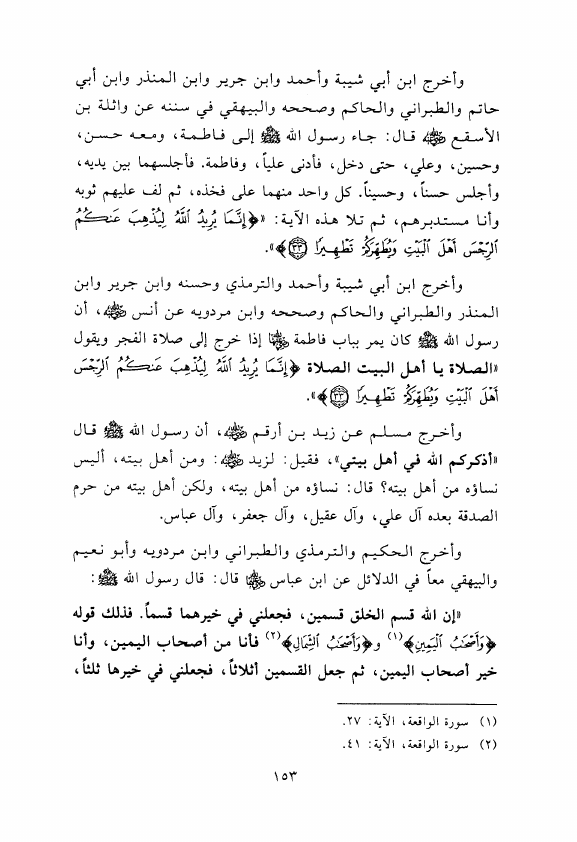 وأخرج ابن أبي شيبة وأحمد وابن جرير وابن المنذر وابن أبي
حاتم والطبراني والحاكم وصححه والبيهقي في سننه عن واثلة بن
الأسقع رضي الله عنه قال: جاء رسول الله ﷺ إلى فاطمة، ومعه حسن،
وحسين، وعلي، حتى دخل، فأدنى علياً، وفاطمة. فأجلسهما بين يديه،
وأجلس حسناً، وحسيناً. كل واحد منهما على فخذه، ثم لف عليهم ثوبه
وأنا مستدبرهم، ثم تلا هذه الآية: «﴿إِنَّمَا يُرِيدُ اللَّهُ لِيُذْهِبَ عَنكُمُ
الرِّجْسَ أَهْلَ الْبَيْتِ وَيُطَهِّرَكُمْ تَطْهِيرًا ٣٣﴾».
وأخرج ابن أبي شيبة وأحمد والترمذي وحسنه وابن جرير وابن
المنذر والطبراني والحاكم وصححه وابن مردويه عن أنس رضي الله عنه، أن
رسول الله ﷺ كان يمر بباب فاطمة رضي الله عنها إذا خرج إلى صلاة الفجر ويقول
«الصلاة يا أهل البيت الصلاة ﴿إِنَّمَا يُرِيدُ اللَّهُ لِيُذْهِبَ عَنكُمُ الرِّجْسَ
أَهْلَ الْبَيْتِ وَيُطَهِّرَكُمْ تَطْهِيرًا ٣٣﴾».
وأخرج مسلم عن زيد بن أرقم رضي الله عنه، أن رسول الله ﷺ قال
«أذكركم الله في أهل بيتي»، فقيل: لزيد رضي الله عنه: ومن أهل بيته، أليس
نساؤه من أهل بيته؟ قال: نساؤه من أهل بيته، ولكن أهل بيته من حرم
الصدقة بعده آل علي، وآل عقيل، وآل جعفر، وآل عباس.
وأخرج الحكيم والترمذي والطبراني وابن مردويه وأبو نعيم
والبيهقي معاً في الدلائل عن ابن عباس رضي الله عنهما قال: قال رسول الله ﷺ:
«إن الله قسم الخلق قسمين، فجعلني في خيرهما قسماً. فذلك قوله
﴿وَأَصْحَابُ الْيَمِينِ﴾(١) و﴿وَأَصْحَابُ الشِّمَالِ﴾(٢) فأنا من أصحاب اليمين، وأنا
خير أصحاب اليمين، ثم جعل القسمين أثلاثاً، فجعلني في خيرها ثلثاً،
(١) سورة الواقعة، الآية: ٢٧.
(٢) سورة الواقعة، الآية: ٤١.
١٥٣